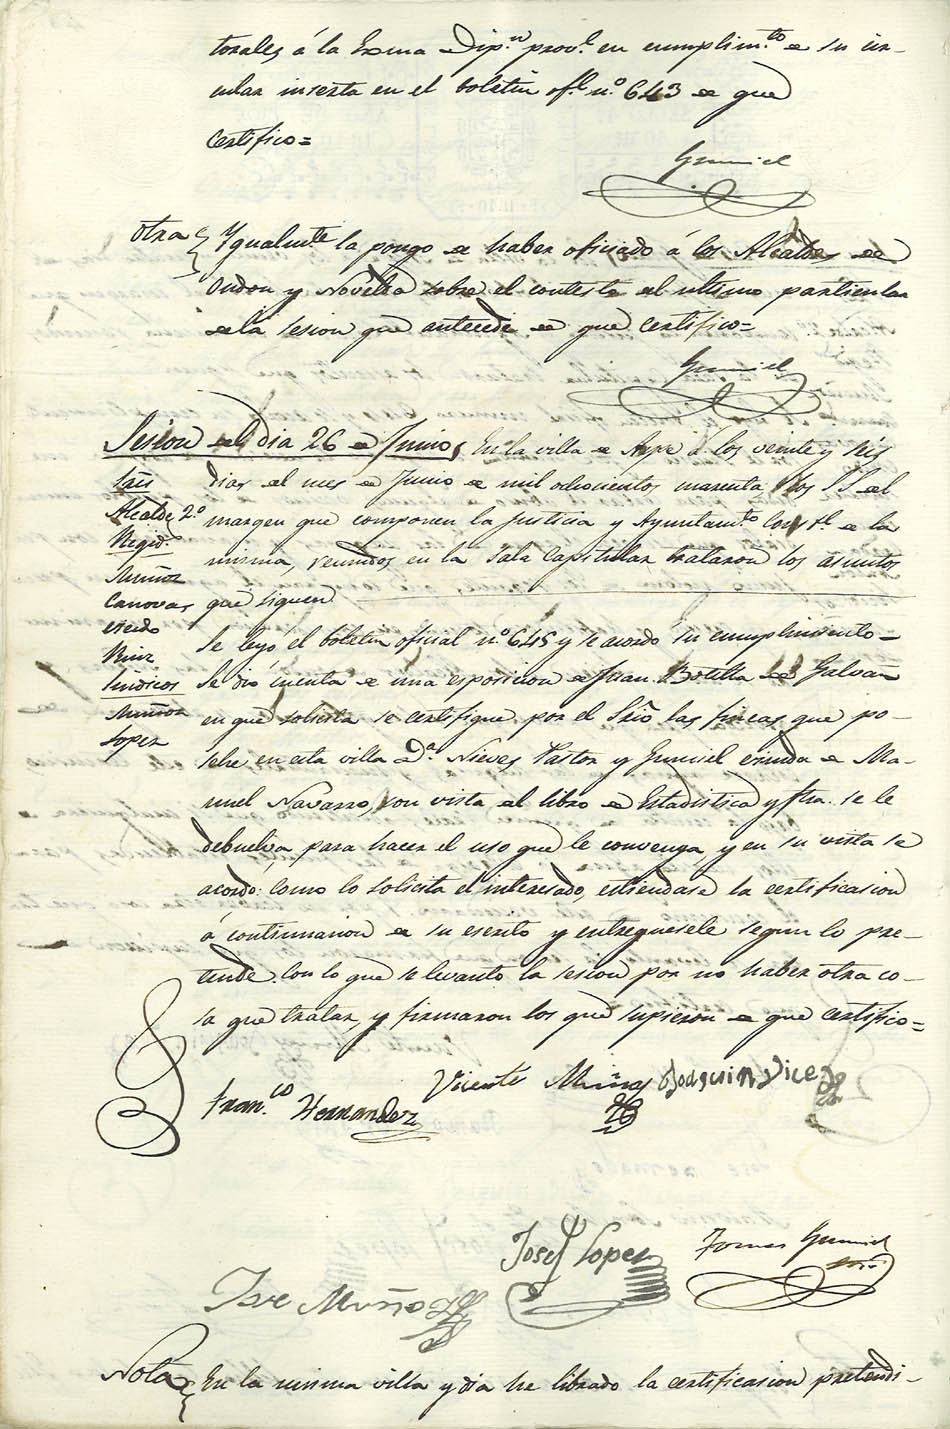 torales á la Exma Dip.n prov.l en cumplim.to de su cir-
cular inserta en el boletin of.l n.o 643 de que
certifico=
Gumiel
Otra Ygualm.te la pongo de haber oficiado á los Alcaldes de
Ondon y Novelda sobre el contesto del ultimo particular
de la sesion que antecede de que certifico=
Gumiel
Sesion del dia 26 de Junio, En la villa de Aspe á los veinte y seis
dias del mes de Junio de mil ochocientos cuarenta, los SS del
margen que componen la Justicia y Ayuntam.to Const.l de la
misma, reunidos en la Sala Capitular trataron los asuntos
que siguen
Sres
Alcalde 2.o
Regid.s
Muñoz
Canovas
Ruiz
Sindicos
Muñoz
Lopez
Se leyó el boletin oficial n.o 645 y se acordó su cumplimiento-
Se dió cuenta de una esposicion de Fran. Botella de Galvañ
en que solicita se certifique por el Srio las fincas que po-
sehe en esta villa D.a Nieves Pastor y Gumiel viuda de Ma-
nuel Navarro, con vista del libro de Estadistica y fha. se le
debuelva para hacer el uso que le convenga y en su vista se
acordó: como lo solicita el interesado, estiendase la certificacion
á continuacion de su escrito y entreguesele segun lo pre-
tende. Con lo que se levantó la sesion por no haber otra co-
sa que tratar, y firmaron los que supieron de que certifico=
Fran.co Hernandez
Vicente Muñoz
Joaquin
Jose Lopez
Tomas Gumiel
srio
Jose Muñoz
Nota En la misma villa y dia he librado la certificacion pretendi-